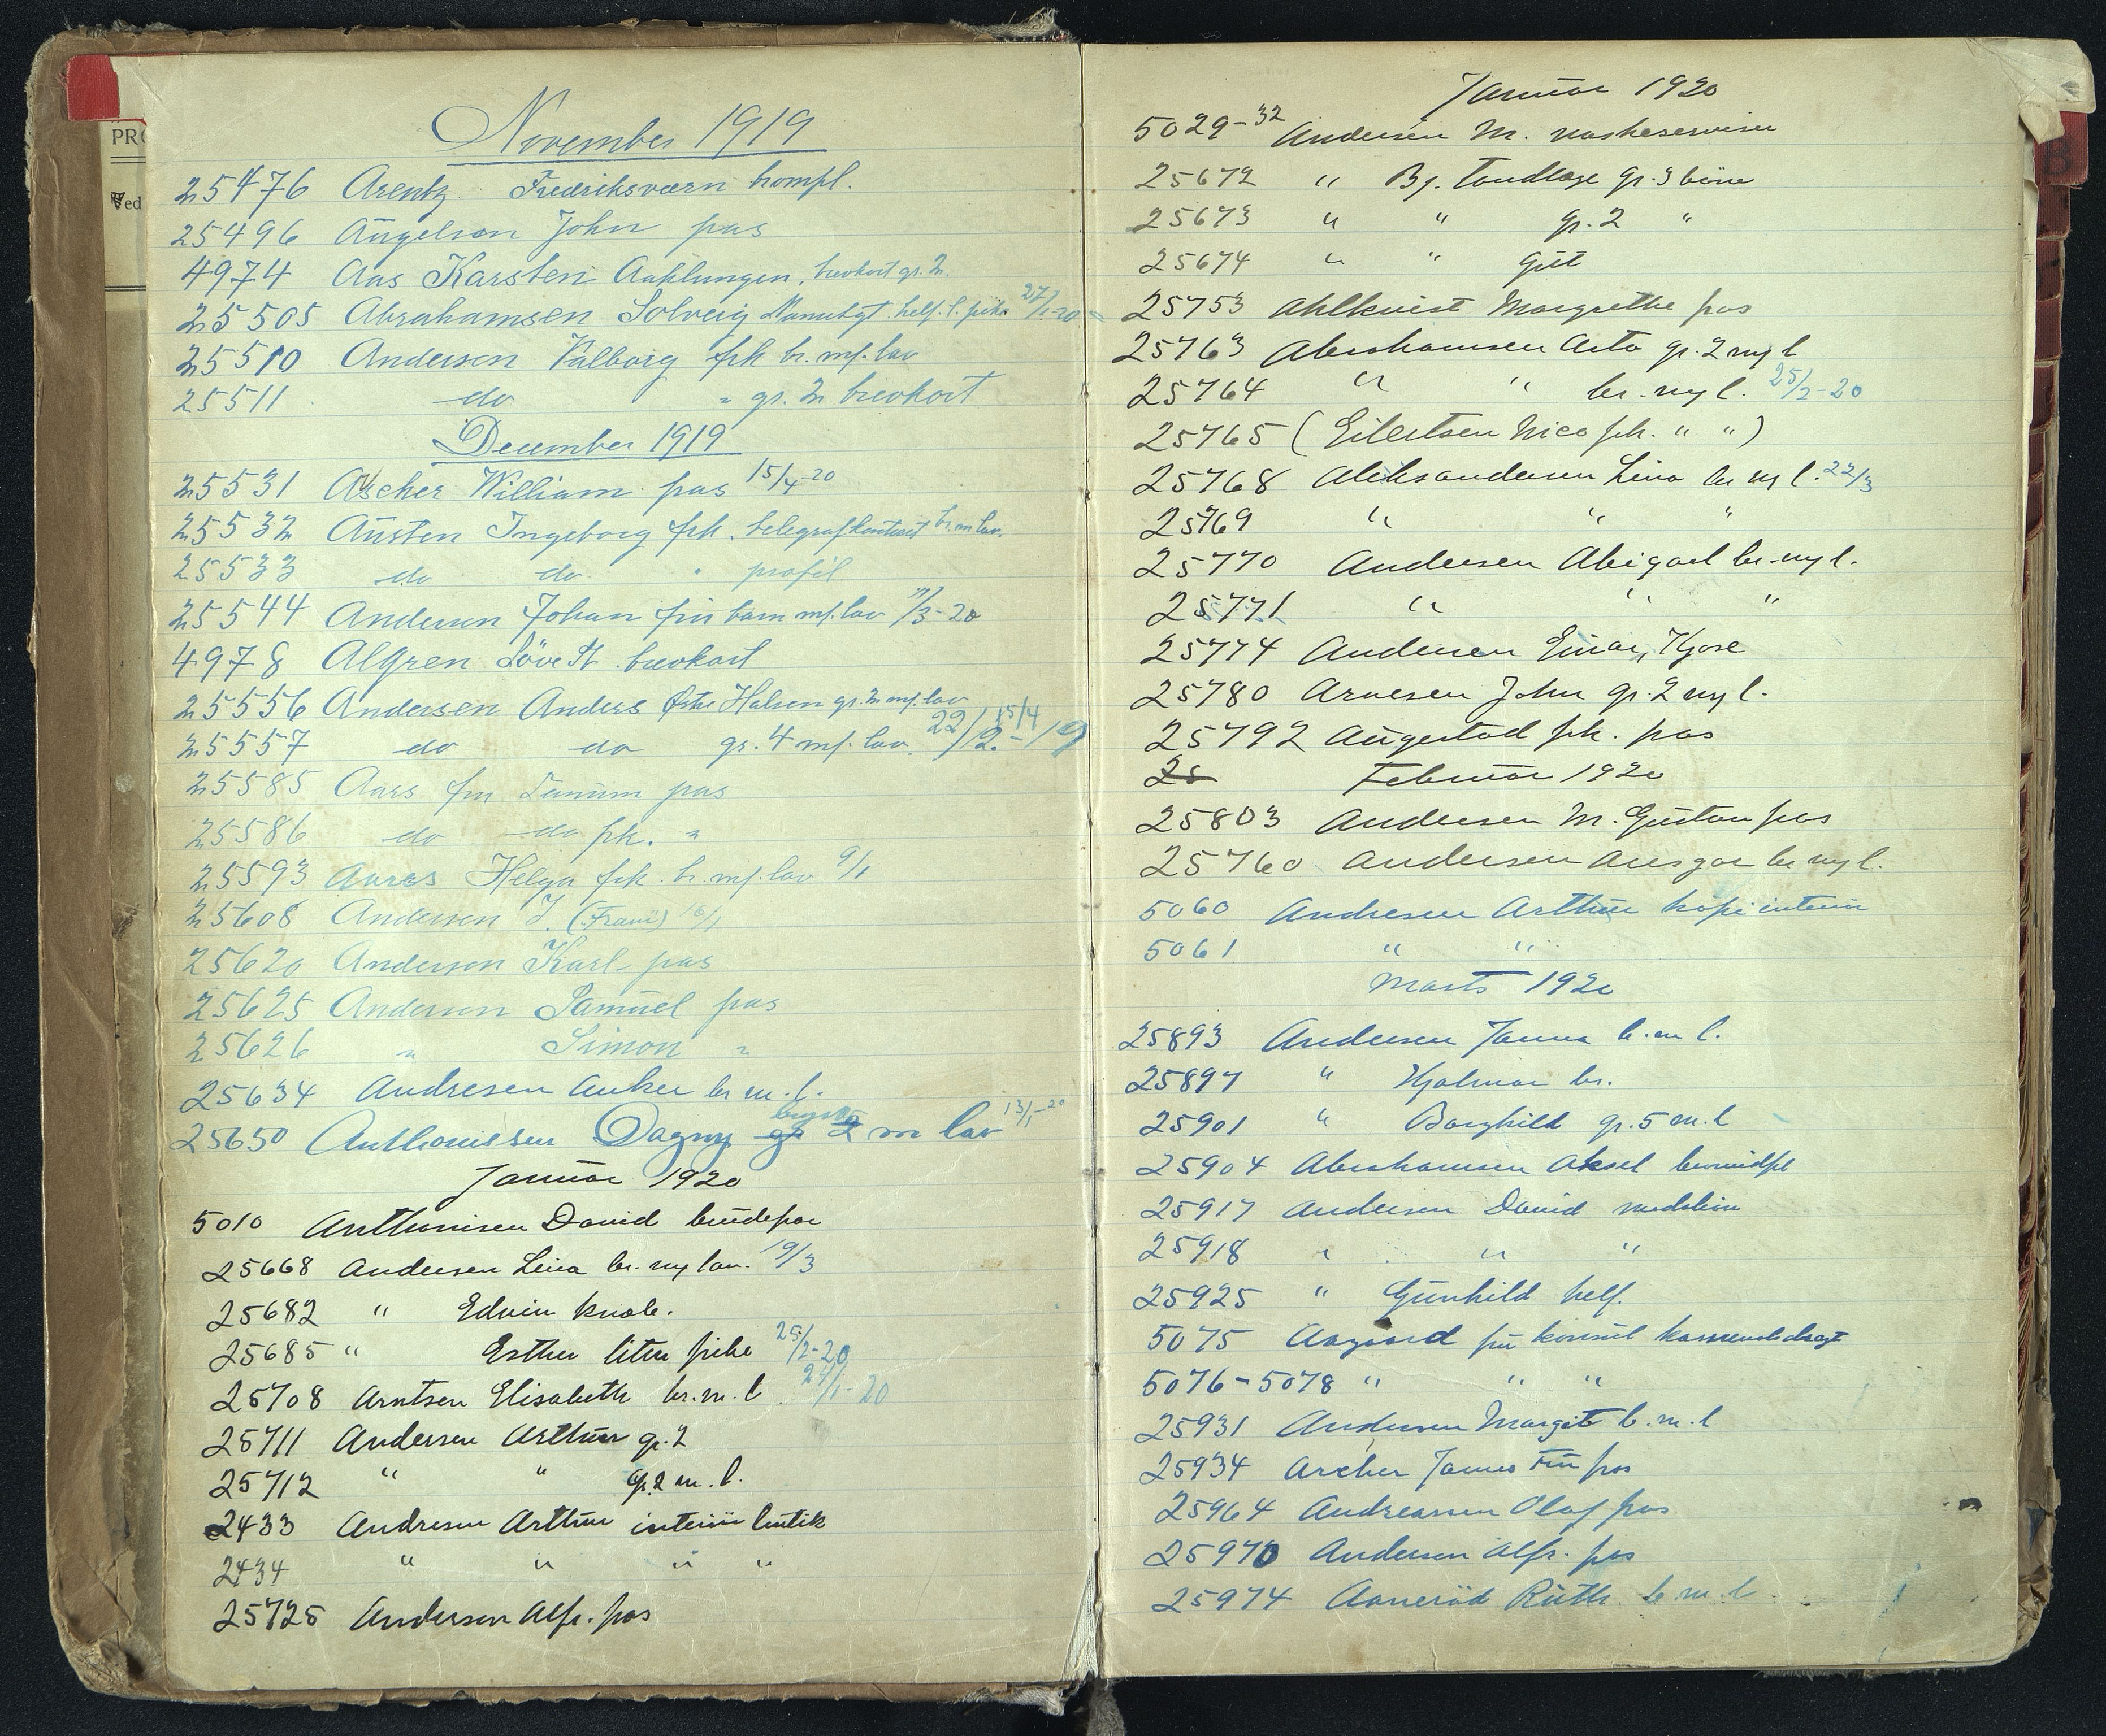 PRO
Ved
November 1919
25476 Arentz Fredriksværn kompl.
25496 Augelson John pas
4974 Aas Karsten brevkort gr. 2.
25505 Abrahamsen Solveig helf. l. pike 27/1-20
25510 Andersen Valborg frk br. mf. lav
25511 do " gr. 2 brevkort
December 1919
25531 Ascher William pas 15/4-20
25532 Austen Ingeborg frk. telegrafkontoret br. m lav.
25533 do do " profil
25544 Andersen Johan fru barn mf. lav 11/3-20
4978 Algren brevkort
25556 Andersen Anders Østre Halsen gr. 2 mf. lav 15/4
25557 do do gr. 4 mf. lav. 22/12-19
25585 Aars fru Tanum pas
25586 do do frk. "
25593 Helga frk. br. mf. lav 9/1
25608 Andersen J. (Frau) 16/1
25620 Anderson Karl pas
25625 Anderson Samuel pas
25626 " Simon "
25634 Andresen Anker br m. l.
25650 Anthonissen Dagny gr 2 m lav 13/1-20
Januar 1920
5010 Anthonisen David brudepar
25668 Andersen Lina br. ny lav. 19/3
25682 " Edvin knæb.
25685 " Esther liten pike 25/2-20
25708 Arntsen Elisabeth br. m. l. 24/1-20
25711 Andersen Arthur gr. 2
25712 " " gr. 2 m. l.
2433 Andresen Arthur interiør butik
2434 " " " "
25725 Andersen Alfr. pas
Januar 1920
5029-32 Andersen M.
25672 " Bj. Tandlæge gr. 3 børn
25673 " " gr. 2 "
25674 " " Gut
25753 Ahlkvist Margrethe pas
25763 Abrahamsen Asta gr. 2 ny l
25764 " " br. ny l. 25/2-20
25765 (Eilertsen Nico frk. " ")
25768 Aleksandersen Lina br ny l. 22/3
25769 " " "
25770 Andersen Abigael br. ny l.
25771 " " "
25774 Andersen Einar, Kjose
25780 Arnesen John gr. 2 ny l.
25792 Augestad frk. pas
25 Februar 1920
25803 Andersen M. Gustav pas
25760 Andersen Ansgar br ny l.
5060 Andresen Arthur kopi interiør
5061 " "
Marts 1920
25893 Andersen Janna b. m l.
25897 " Hjalmar br.
25901 " Borghild gr. 5 m. l
25904 Abrahamsen Aksel
25917 Andersen David medaljon
25918 " " "
25925 " Gunhild helf.
5075 Aagaard fru konsul
5076-5078 " " "
25931 Andersen Margit b. m. l
25934 Archer James Fru pas
25964 Andreassen Olaf pas
25970 Andersen Alfr. pas
25974 Aanerød Ruth b m l